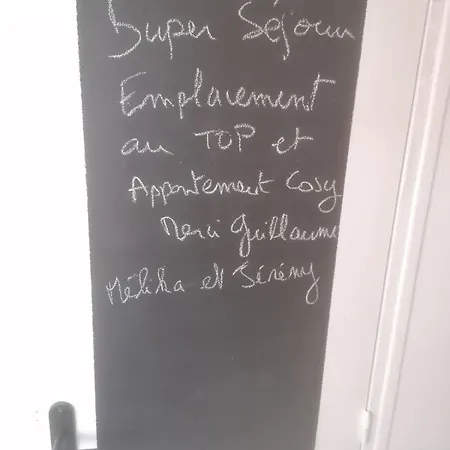 Super Séjour
Emplacement
au TOP et
Appartement Cosy
Merci Guillaume
Mélika et Jérémy